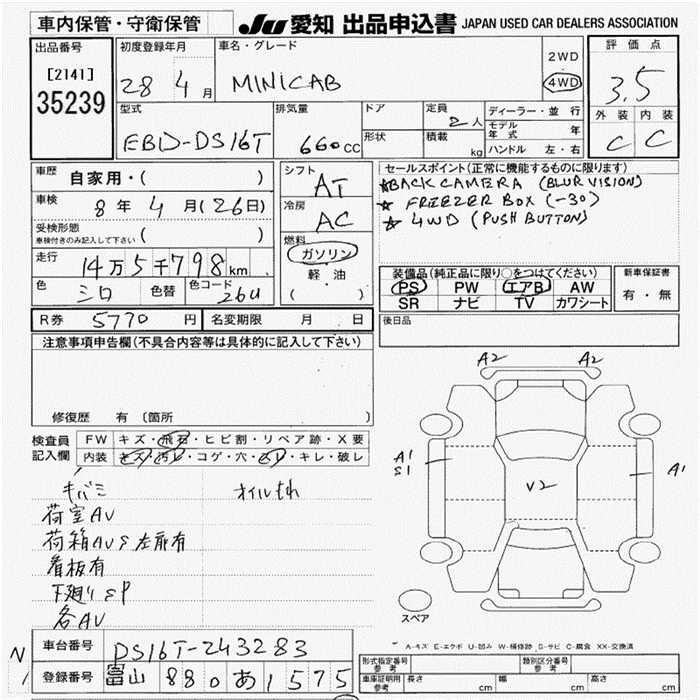 車内保管・守衛保管
JU 愛知 出品申込書 JAPAN USED CAR DEALERS ASSOCIATION
出品番号
[2141]
35239
初度登録年月
28 4 月
車名・グレード
MINICAB
2WD
4WD
評価点
3.5
外装 内装
C C
型式
EBD-DS16T
排気量
660 CC
ドア
形状
定員
2 人
積載
kg
ディーラー・並行
モデル年式 年
ハンドル 左・右
車歴
自家用・( )
車検
8 年 4 月(26日)
受検形態
車検付きのみ記入して下さい ( )
走行
14万5千798km
色
シロ
色替
色コード
26U
シフト
AT
冷房
AC
燃料
ガソリン
軽油
( )
セールスポイント(正常に機能するものに限ります)
★BACK CAMERA (BLUR VISION)
★ FREEZER BOX (-30)
★ 4WD (PUSH BUTTON)
装備品(純正品に限り○をつけてください)
PS PW エアB AW
SR ナビ TV カワシート
新車保証書
有・無
R券 5770 円
名変期限 月 日
後日品
注意事項申告欄(不具合内容等は具体的に記入して下さい)
修復歴 有 〔箇所
検査員記入欄
FW キズ・飛石・ヒビ割・リペア跡・X要
内装 キズ・汚レ・コゲ・穴・スリ・キレ・破レ
キバミ
オイルもれ
荷室AU
荷箱AUS左扉有
看板有
下廻りSP
各AU
A2 A2
A1
S1
V2
A1
スペア
A-キズ E-エクボ U-凹み W-補修跡 S-サビ C-腐食 XX-交換済
車台番号
DS16T-243283
登録番号
富山 880 あ 1575
N
型式指定番号
参考
類別区分番号
参考
車庫証明用
参考
長さ cm
幅 cm
高さ cm